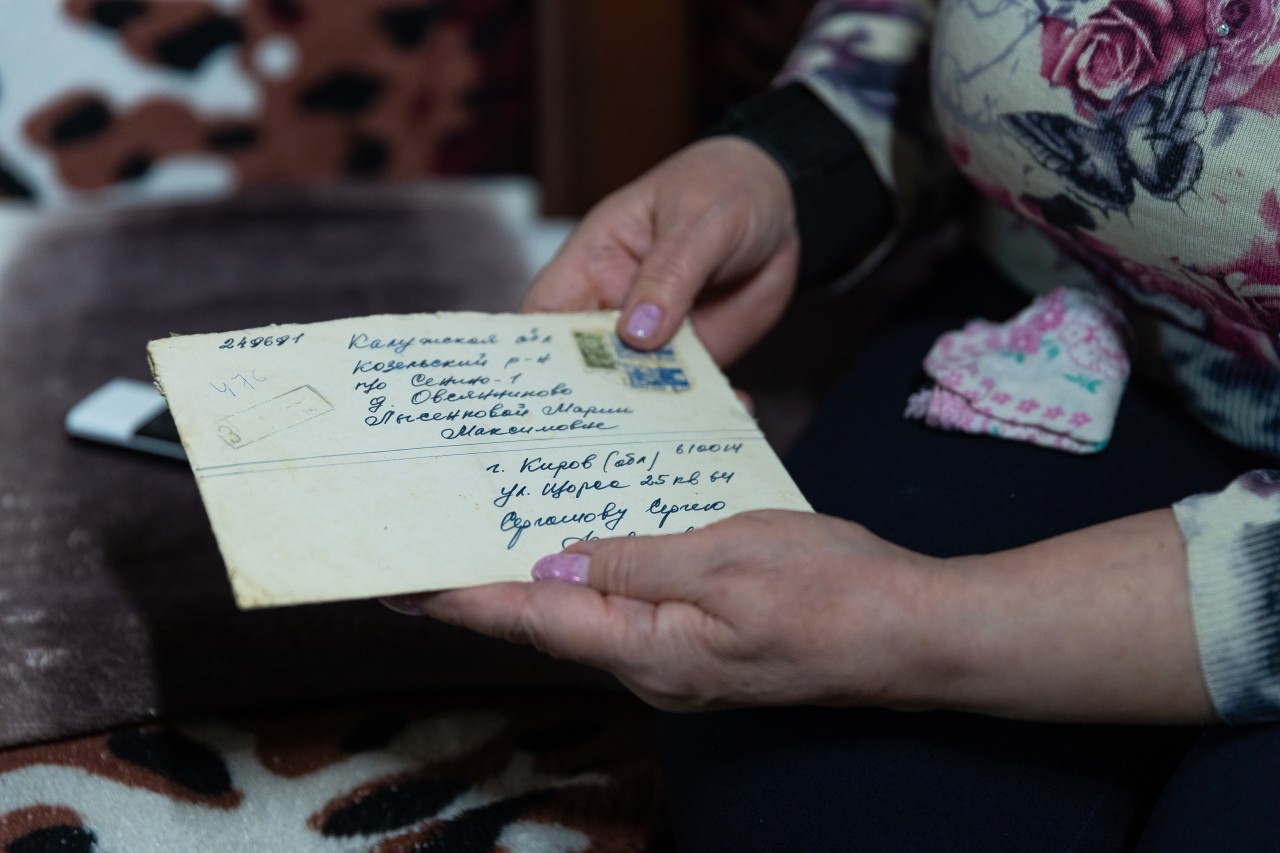 249691 Калужская обл
козельский р-н
п/о Сенино-1
д. Овсянниково
Лысенковой Марии
Максимовне
476
З
г. Киров (обл) 610014
ул. Щорса 25 кв 64
Сергамову Сергею